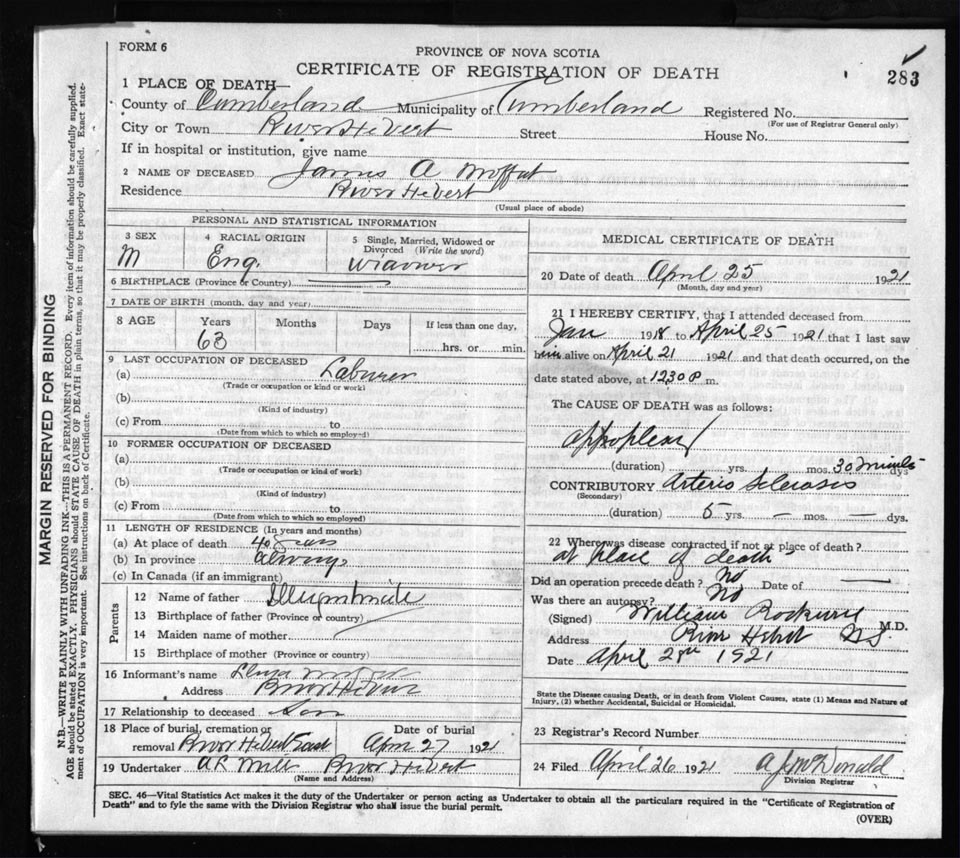 FORM 6
PROVINCE OF NOVA SCOTIA
CERTIFICATE OF REGISTRATION OF DEATH
283
1 PLACE OF DEATH—
County of Cumberland Municipality of Cumberland Registered No.
(For use of Registrar General only)
City or Town River Hebert Street House No.
If in hospital or institution, give name
2 NAME OF DECEASED James A Moffat
Residence River Hebert
(Usual place of abode)
PERSONAL AND STATISTICAL INFORMATION
3 SEX M
4 RACIAL ORIGIN Eng.
5 Single, Married, Widowed or Divorced (Write the word)
6 BIRTHPLACE (Province or Country)
7 DATE OF BIRTH (month, day and year)
8 AGE Years Months Days If less than one day,
63 hrs. or min.
9 LAST OCCUPATION OF DECEASED
(a) Laburer
(Trade or occupation or kind of work)
(b)
(Kind of industry)
(c) From to
(Date from which to which so employed)
10 FORMER OCCUPATION OF DECEASED
(a)
(Trade or occupation or kind of work)
(b)
(Kind of industry)
(c) From to
(Date from which to which so employed)
11 LENGTH OF RESIDENCE (In years and months)
(a) At place of death 40 years
(b) In province always
(c) In Canada (if an immigrant)
Parents
12 Name of father
13 Birthplace of father (Province or country)
14 Maiden name of mother
15 Birthplace of mother (Province or country)
16 Informant's name
Address River Hebert
17 Relationship to deceased Son
18 Place of burial, cremation or Date of burial
removal River Hebert East April 27 1921
19 Undertaker River Hebert
(Name and Address)
MEDICAL CERTIFICATE OF DEATH
20 Date of death April 25 1921
(Month, day and year)
21 I HEREBY CERTIFY, that I attended deceased from
Jan 1918 to April 25 1921 that I last saw
him alive on April 21 1921 and that death occurred, on the
date stated above, at 12.30 P m.
The CAUSE OF DEATH was as follows:
appoplexy
(duration) yrs. mos. 30 minutes dys
CONTRIBUTORY Arterio Sclerosis
(Secondary)
(duration) 5 yrs. — mos. — dys.
22 Where was disease contracted if not at place of death?
at place of death
Did an operation precede death? No Date of —
Was there an autopsy? No
(Signed) William Rockwell M.D.
Address River Hebert N.S
Date April 28th 1921
State the Disease causing Death, or in death from Violent Causes, state (1) Means and Nature of
Injury, (2) whether Accidental, Suicidal or Homicidal.
23 Registrar's Record Number
24 Filed April 26 1921 McDonald
Division Registrar
SEC. 46—Vital Statistics Act makes it the duty of the Undertaker or person acting as Undertaker to obtain all the particulars required in the "Certificate of Registration of
Death" and to fyle the same with the Division Registrar who shall issue the burial permit.
(OVER)
MARGIN RESERVED FOR BINDING
N.B.—WRITE PLAINLY WITH UNFADING INK—THIS IS A PERMANENT RECORD. Every item of information should be carefully supplied.
AGE should be stated EXACTLY. PHYSICIANS should STATE CAUSE OF DEATH in plain terms, so that it may be properly classified. Exact state-
ment of OCCUPATION is very important. See instructions on back of Certificate.